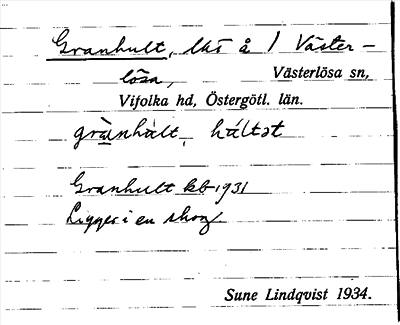 Granhult, lhs å 1 Väster-
lösa, Västerlösa sn,
Vifolka hd, Östergötl. län.
grànhàlt, háltət
Granhult kb 1931
Ligger i en skog
Sune Lindqvist 1934.